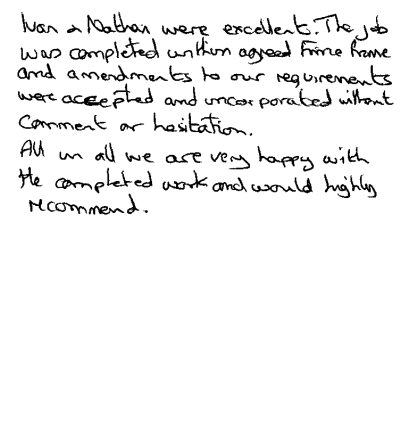 Ivan & Nathan were excellent. The job
was completed within agreed time frame
and amendments to our requirements
were accepted and incorporated without
comment or hesitation.
All in all we are very happy with
the completed work and would highly
recommend.